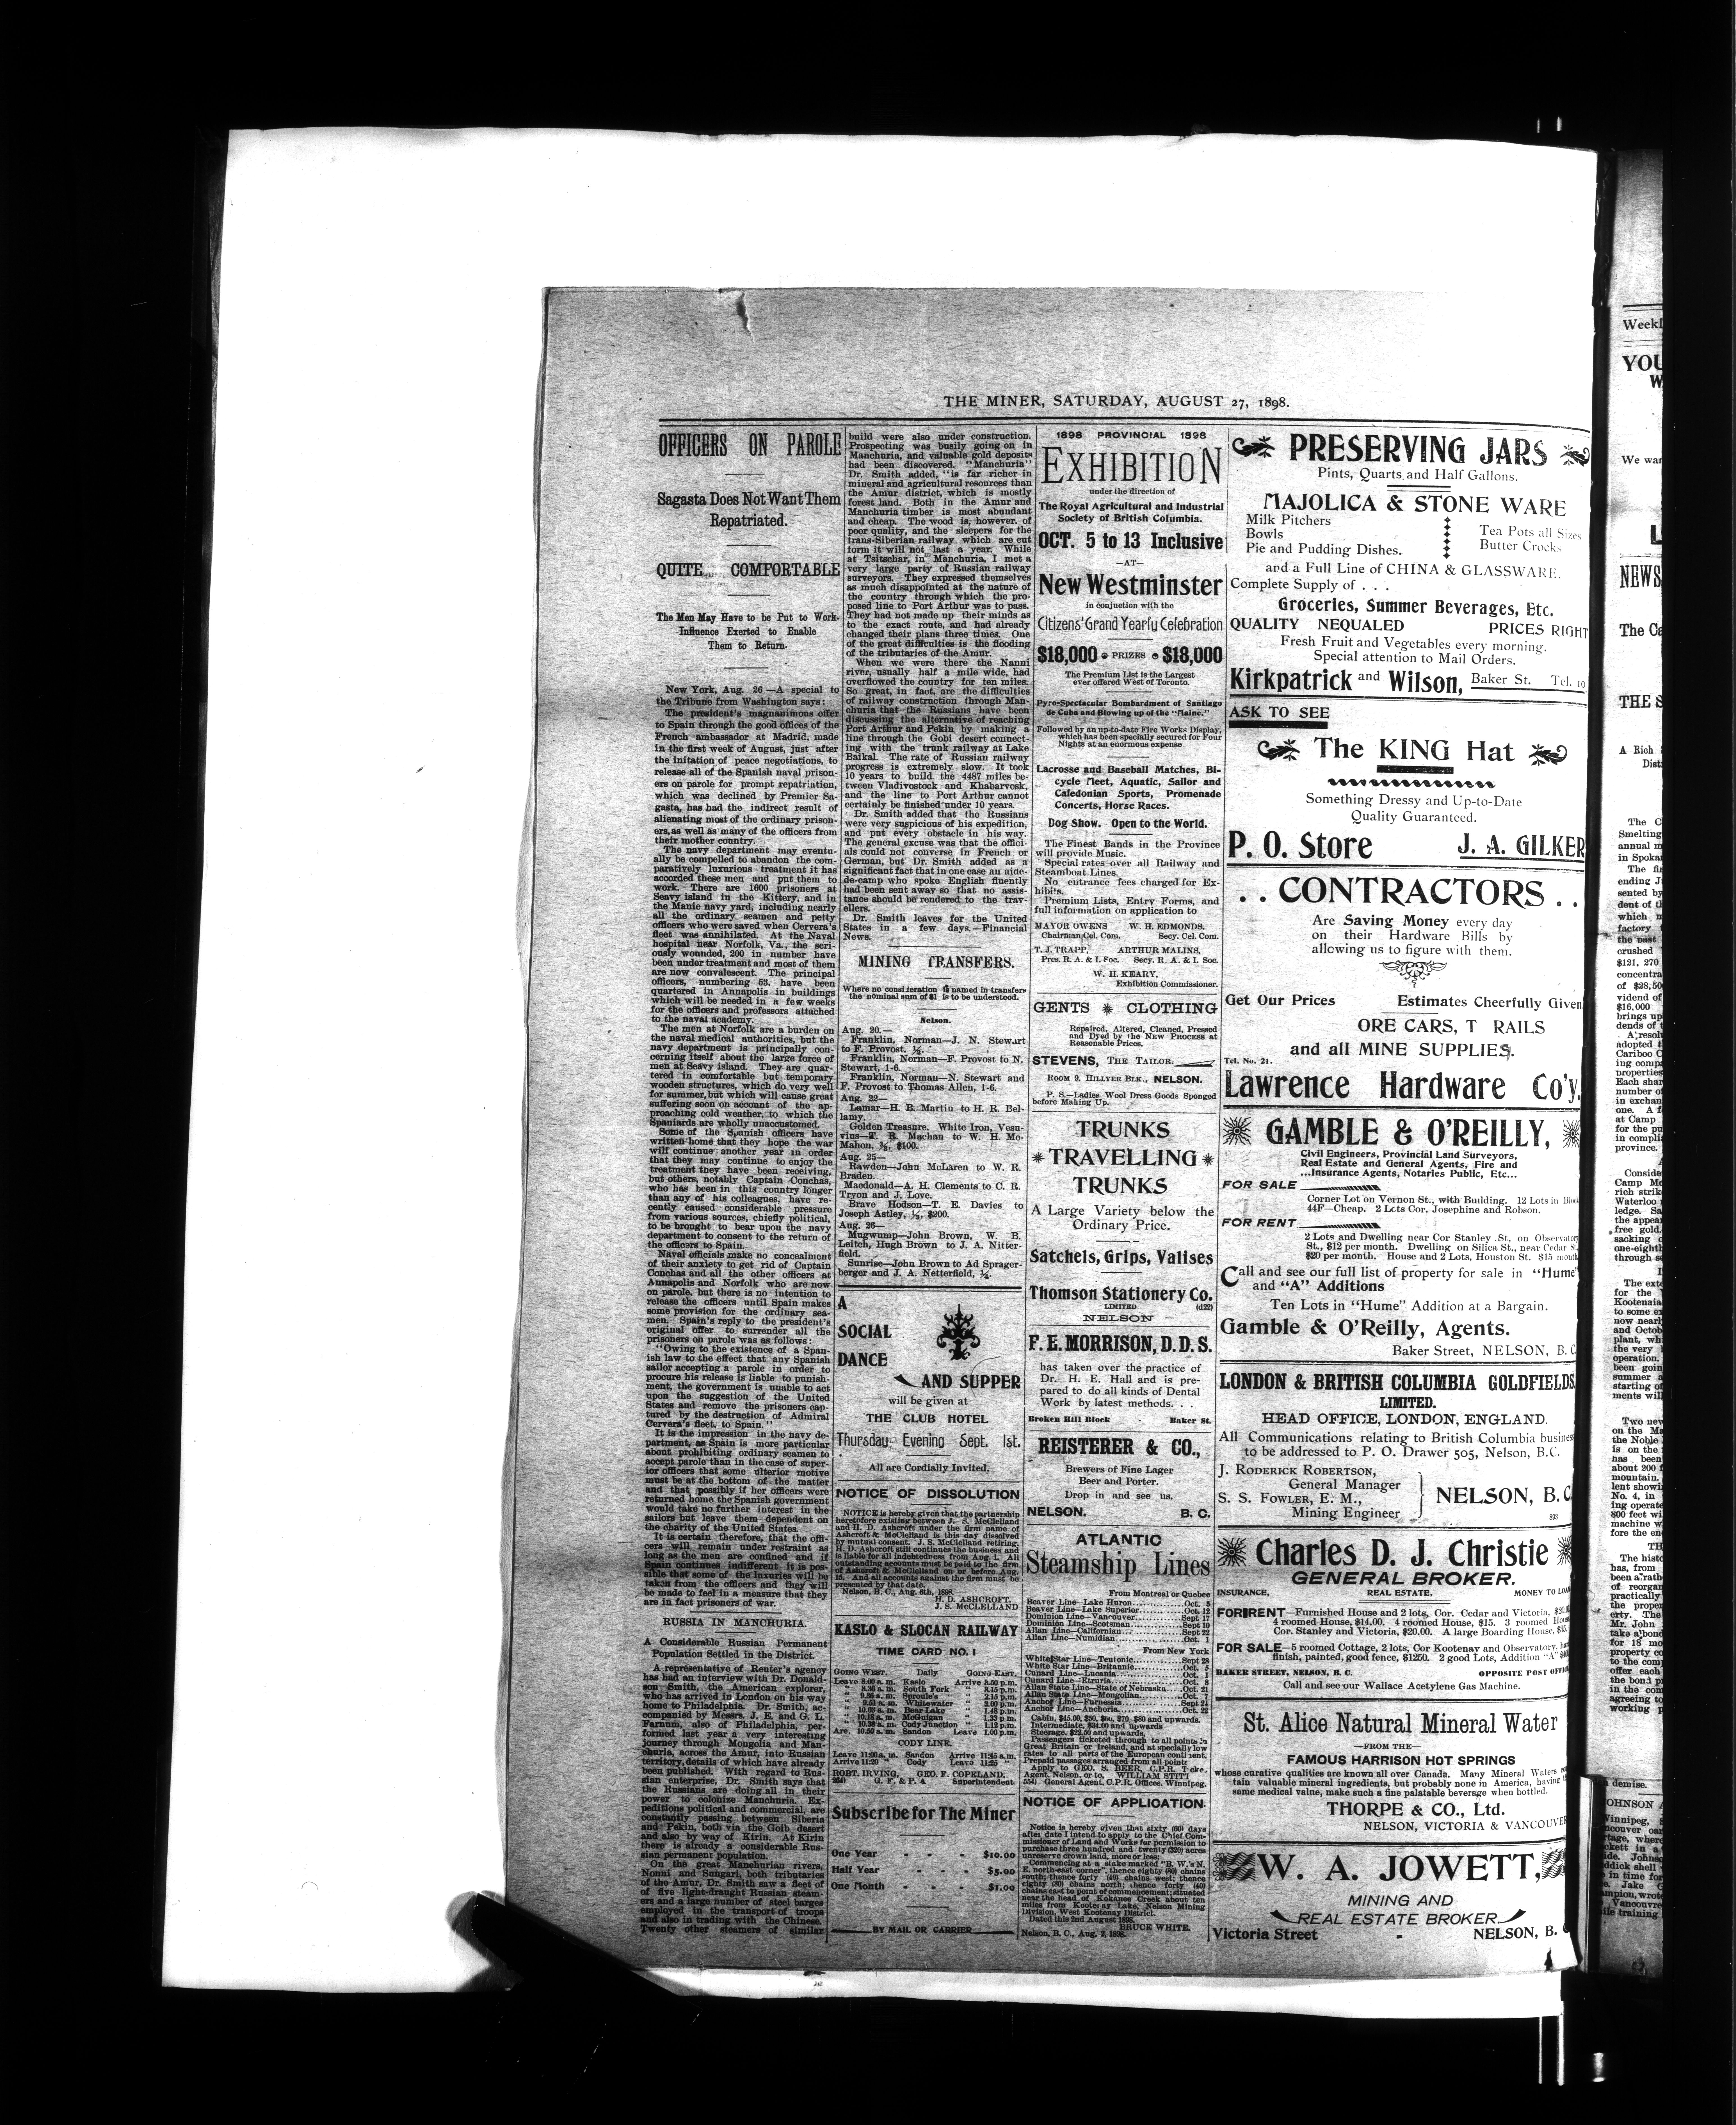 THE MINER, SATURDAY, AUGUST 27, 1898.
OFFICERS ON PAROLE
Sagasta Does Not Want Them
Repatriated.
QUITE COMFORTABLE
The Men May Have to be Put to Work-
Influence Exerted to Enable
Them to Return.
New York, Aug. 26 —A special to
the Tribune from Washington says:
The president's magnanimous offer
to Spain through the good offices of the
French ambassador at Madrid, made
in the first week of August, just after
the initation of peace negotiations, to
release all of the Spanish naval prison-
ers on parole for prompt repatriation,
which was declined by Premier Sa-
gasta, has had the indirect result of
alienating most of the ordinary prison-
ers, as well as many of the officers from
their mother country.
The navy department may eventu-
ally be compelled to abandon the com-
paratively luxurious treatment it has
accorded these men and put them to
work. There are 1600 prisoners at
Seavy island in the Kittery, and in
the Manie navy yard, including nearly
all the ordinary seamen and petty
officers who were saved when Cervera's
fleet was annihilated. At the Naval
hospital near Norfolk, Va., the seri-
ously wounded, 200 in number have
been under treatment and most of them
are now convalescent. The principal
officers, numbering 53, have been
quartered in Annapolis in buildings
which will be needed in a few weeks
for the officers and professors attached
to the naval academy.
The men at Norfolk are a burden on
the naval medical authorities, but the
navy department is principally con-
cerning itself about the large force of
men at Seavy island. They are quar-
tered in comfortable but temporary
wooden structures, which do very well
for summer, but which will cause great
suffering soon on account of the ap-
proaching cold weather, to which the
Spaniards are wholly unaccustomed.
Some of the Spanish officers have
written home that they hope the war
will continue another year in order
that they may continue to enjoy the
treatment they have been receiving,
but others, notably Captain Conchas,
who has been in this country longer
than any of his colleagues, have re-
cently caused considerable pressure
from various sources, chiefly political,
to be brought to bear upon the navy
department to consent to the return of
the officers to Spain.
Naval officials make no concealment
of their anxiety to get rid of Captain
Conchas and all the other officers at
Annapolis and Norfolk who are now
on parole, but there is no intention to
release the officers until Spain makes
some provision for the ordinary sea-
men. Spain's reply to the president's
original offer to surrender all the
prisoners on parole was as follows:
"Owing to the existence of a Span-
ish law to the effect that any Spanish
sailor accepting a parole in order to
procure his release is liable to punish-
ment, the government is unable to act
upon the suggestion of the United
States and remove the prisoners cap-
tured by the destruction of Admiral
Cervera's fleet, to Spain."
It is the impression in the navy de-
partment, as Spain is more particular
about prohibiting ordinary seamen to
accept parole than in the case of super-
ior officers that some ulterior motive
must be at the bottom of the matter
and that possibly if her officers were
returned home the Spanish government
would take no further interest in the
sailors but leave them dependent on
the charity of the United States.
It is certain therefore, that the offi-
cers will remain under restraint as
long as the men are confined and if
Spain continues indifferent it is pos-
sible that some of the luxuries will be
taken from the officers and they will
be made to feel in a measure that they
are in fact prisoners of war.
RUSSIA IN MANCHURIA.
A Considerable Russian Permanent
Population Settled in the District.
A representative of Reuter's agency
has had an interview with Dr. Donald-
son Smith, the American explorer,
who has arrived in London on his way
home to Philadelphia. Dr. Smith, ac-
companied by Messrs. J. E. and G. L.
Farnum, also of Philadelphia, per-
formed last year a very interesting
journey through Mongolia and Man-
churia, across the Amur, into Russian
territory, details of which have already
been published. With regard to Rus-
sian enterprise, Dr. Smith says that
the Russians are doing all in their
power to colonize Manchuria. Ex-
peditions political and commercial, are
constantly passing between Siberia
and Pekin, both via the Goib desert
and also by way of Kirin. At Kirin
there is already a considerable Rus-
sian permanent population.
On the great Manchurian rivers,
Nonni and Sungari, both tributaries
of the Amur, Dr. Smith saw a fleet of
of five light-draught Russian steam-
ers and a large number of steel barges
employed in the transport of troops
and also in trading with the Chinese.
Twenty other steamers of similar
build were also under construction.
Prospecting was busily going on in
Manchuria, and valuable gold deposits
had been discovered. "Manchuria"
Dr. Smith added, "is far richer in
mineral and agricultural resources than
the Amur district, which is mostly
forest land. Both in the Amur and
Manchuria timber is most abundant
and cheap. The wood is, however, of
poor quality, and the sleepers for the
trans-Siberian railway which are cut
form it will not last a year. While
at Tsitschar, in Manchuria, I met a
very large party of Russian railway
surveyors. They expressed themselves
as much disappointed at the nature of
the country through which the pro-
posed line to Port Arthur was to pass.
They had not made up their minds as
to the exact route, and had already
changed their plans three times. One
of the great difficulties is the flooding
of the tributaries of the Amur.
When we were there the Nanni
river, usually half a mile wide, had
overflowed the country for ten miles.
So great, in fact, are the difficulties
of railway construction through Man-
churia that the Russians have been
discussing the alternative of reaching
Port Arthur and Pekin by making a
line through the Gobi desert connect-
ing with the trunk railway at Lake
Baikal. The rate of Russian railway
progress is extremely slow. It took
10 years to build the 4487 miles be-
tween Vladivostock and Khabarvosk,
and the line to Port Arthur cannot
certainly be finished under 10 years.
Dr. Smith added that the Russians
were very suspicious of his expedition,
and put every obstacle in his way.
The general excuse was that the offici-
als could not converse in French or
German, but Dr. Smith added as a
significant fact that in one case an aide-
de-camp who spoke English fluently
had been sent away so that no assis-
tance should be rendered to the trav-
ellers.
Dr. Smith leaves for the United
States in a few days.—Financial
News.
MINING TRANSFERS.
Where no consideration is named in transfers
the nominal sum of $1 is to be understood.
Nelson.
Aug. 20.—
Franklin, Norman—J. N. Stewart
to F. Provost, ½.
Franklin, Norman—F. Provost to N.
Stewart, 1-6.
Franklin, Norman—N. Stewart and
F. Provost to Thomas Allen, 1-6.
Aug. 22—
Lamar—H. B. Martin to H. R. Bel-
lamy.
Golden Treasure, White Iron, Vesu-
vius—T. R. Machan to W. H. Mc-
Mahon, $100.
Aug. 25—
Rawdon—John McLaren to W. R.
Braden.
Macdonald—A. H. Clements to C. R.
Tryon and J. Love.
Brave Hodson—T. E. Davies to
Joseph Astley, ½, $200.
Aug. 26—
Mugwump—John Brown, W. B.
Leitch, Hugh Brown to J. A. Nitter-
field.
Sunrise—John Brown to Ad Sprager-
berger and J. A. Netterfield, ½.
A
SOCIAL
DANCE
AND SUPPER
will be given at
THE CLUB HOTEL
Thursday Evening Sept. 1st.
All are Cordially Invited.
NOTICE OF DISSOLUTION
NOTICE is hereby given that the partnership
heretofore existing between J. S. McClelland
and H. D. Ashcroft under the firm name of
Ashcroft & McClelland is this day dissolved
by mutual consent. J. S. McClelland retiring.
H. D. Ashcroft still continues the business and
is liable for all indebtedness from Aug. 1. All
outstanding accounts must be paid to the firm
of Ashcroft & McClelland on or before Aug.
15. And all accounts against the firm must be
presented by that date.
Nelson, B. C., Aug. 8th, 1898.
H. D. ASHCROFT.
J. S. McCLELLAND
KASLO & SLOCAN RAILWAY
TIME CARD NO. 1
GOING WEST. Daily GOING EAST.
Leave 8.00 a. m. Kaslo Arrive 3.50 p.m.
" 8.36 a. m. South Fork " 3.15 p.m.
" 9.36 a. m. Sproule's " 2.15 p.m.
" 9.51 a. m. Whitewater " 2.00 p.m.
" 10.03 a. m. Bear Lake " 1.48 p.m.
" 10.18 a. m. McGuigan " 1.33 p.m.
" 10.38 a. m. Cody Junction " 1.12 p.m.
Arr. 10.50 a. m. Sandon Leave 1.00 p.m.
CODY LINE.
Leave 11:00 a. m. Sandon Arrive 11:45 a.m.
Arrive 11:20 " Cody Leave 11:25 "
ROBT. IRVING, GEO. F. COPELAND,
G. F. & P. A Superintendent
Subscribe for The Miner
One Year - - - $10.00
Half Year - - - $5.00
One Month - - - $1.00
BY MAIL OR CARRIER
1898 PROVINCIAL 1898
EXHIBITION
under the direction of
The Royal Agricultural and Industrial
Society of British Columbia.
OCT. 5 to 13 Inclusive
—AT—
New Westminster
in conjuction with the
Citizens' Grand Yearly Celebration
$18,000 PRIZES $18,000
The Premium List is the Largest
ever offered West of Toronto.
Pyro-Spectacular Bombardment of Santiago
de Cuba and Blowing up of the "Maine."
Followed by an up-to-date Fire Works Display,
which has been specially secured for Four
Nights at an enormous expense
Lacrosse and Baseball Matches, Bi-
cycle Meet, Aquatic, Sailor and
Caledonian Sports, Promenade
Concerts, Horse Races.
Dog Show. Open to the World.
The Finest Bands in the Province
will provide Music.
Special rates over all Railway and
Steamboat Lines.
No entrance fees charged for Ex-
hibits.
Premium Lists, Entry Forms, and
full information on application to
MAYOR OWENS W. H. EDMONDS.
Chairman Cel. Com. Secy. Cel. Com.
T. J. TRAPP, ARTHUR MALINS,
Pres. R. A. & I. Soc. Secy. R. A. & I. Soc.
W. H. KEARY,
Exhibition Commissioner.
GENTS CLOTHING
Repaired, Altered, Cleaned, Pressed
and Dyed by the NEW PROCESS at
Reasonable Prices.
STEVENS, THE TAILOR.
ROOM 9, HILLYER BLK., NELSON.
P. S.—Ladies Wool Dress Goods Sponged
before Making Up.
TRUNKS
TRAVELLING
TRUNKS
A Large Variety below the
Ordinary Price.
Satchels, Grips, Valises
Thomson Stationery Co.
LIMITED (d22)
NELSON
F. E. MORRISON, D. D. S.
has taken over the practice of
Dr. H. E. Hall and is pre-
pared to do all kinds of Dental
Work by latest methods. . .
Broken Hill Block Baker St.
REISTERER & CO.,
Brewers of Fine Lager
Beer and Porter.
Drop in and see us.
NELSON. B. C.
ATLANTIC
Steamship Lines
From Montreal or Quebec
Beaver Line—Lake Huron Oct. 5
Beaver Line—Lake Superior Oct. 12
Dominion Line—Vancouver Sept 17
Dominion Line—Scotsman Sept 10
Allan Line—Californian Sept 22
Allan Line—Numidian Oct. 1
From New York
White Star Line—Teutonic Sept 28
White Star Line—Britannic Oct. 5
Cunard Line—Lucania Oct. 1
Cunard Line—Etruria Oct. 8
Allan State Line—State of Nebraska Oct. 21
Allan State Line—Mongolian Oct. 7
Anchor Line—Furnessia Sept 24
Anchor Line—Anchoria Oct. 22
Cabin, $45.00, $50, $60, $70 $80 and upwards.
Intermediate, $34.00 and upwards
Steerage, $22.50 and upwards.
Passengers ticketed through to all points in
Great Britain or Ireland, and at specially low
rates to all parts of the European continent.
Prepaid passages arranged from all points
Apply to GEO. S. BEER, C.P.R. Ticket
Agent, Nelson, or to, WILLIAM STITT
554) General Agent, C.P.R. Offices, Winnipeg.
NOTICE OF APPLICATION
Notice is hereby given that sixty (60) days
after date I intend to apply to the Chief Com-
missioner of Land and Works for permission to
purchase three hundred and twenty (320) acres
unreserve crown land, more or less:
Commencing at a stake marked "B. W.'s N.
E. north-east corner", thence eighty (80) chains
south; thence forty (40) chains west; thence
eighty (80) chains north; thence forty (40)
chains east to point of commencement; situated
near the head of Kokanee Creek about ten
miles from Kootenay Lake, Nelson Mining
Division, West Kootenay District.
Dated this 2nd August 1898.
BRUCE WHITE.
Nelson, B. C., Aug. 2, 1898.
PRESERVING JARS
Pints, Quarts and Half Gallons.
MAJOLICA & STONE WARE
Milk Pitchers
Bowls
Pie and Pudding Dishes.
Tea Pots all Sizes
Butter Crocks
and a Full Line of CHINA & GLASSWARE.
Complete Supply of . . .
Groceries, Summer Beverages, Etc.
QUALITY NEQUALED PRICES RIGHT
Fresh Fruit and Vegetables every morning.
Special attention to Mail Orders.
Kirkpatrick and Wilson, Baker St. Tel. 10
ASK TO SEE
The KING Hat
Something Dressy and Up-to-Date
Quality Guaranteed.
P. O. Store J. A. GILKER
. . CONTRACTORS . .
Are Saving Money every day
on their Hardware Bills by
allowing us to figure with them.
Get Our Prices Estimates Cheerfully Given
ORE CARS, T RAILS
and all MINE SUPPLIES.
Tel. No. 21.
Lawrence Hardware Co'y.
GAMBLE & O'REILLY,
Civil Engineers, Provincial Land Surveyors,
Real Estate and General Agents, Fire and
...Insurance Agents, Notaries Public, Etc...
FOR SALE
Corner Lot on Vernon St., with Building. 12 Lots in Block
44F—Cheap. 2 Lots Cor. Josephine and Robson.
FOR RENT
2 Lots and Dwelling near Cor Stanley St. on Observatory
St., $12 per month. Dwelling on Silica St., near Cedar St.
$20 per month. House and 2 Lots, Houston St. $15 month
Call and see our full list of property for sale in "Hume"
and "A" Additions
Ten Lots in "Hume" Addition at a Bargain.
Gamble & O'Reilly, Agents.
Baker Street, NELSON, B. C.
LONDON & BRITISH COLUMBIA GOLDFIELDS
LIMITED.
HEAD OFFICE, LONDON, ENGLAND.
All Communications relating to British Columbia business
to be addressed to P. O. Drawer 505, Nelson, B.C.
J. RODERICK ROBERTSON,
General Manager
S. S. FOWLER, E. M.,
Mining Engineer
NELSON, B. C.
893
Charles D. J. Christie
GENERAL BROKER.
INSURANCE, REAL ESTATE. MONEY TO LOAN
FOR RENT—Furnished House and 2 lots, Cor. Cedar and Victoria,
4 roomed House, $14.00. 4 roomed House, $15. 3 roomed House
Cor. Stanley and Victoria, $20.00. A large Boarding House,
FOR SALE—5 roomed Cottage, 2 lots, Cor Kootenay and Observatory,
finish, painted, good fence, $1250. 2 good Lots, Addition "A"
BAKER STREET, NELSON, B. C. OPPOSITE POST OFFICE
Call and see our Wallace Acetylene Gas Machine.
St. Alice Natural Mineral Water
—FROM THE—
FAMOUS HARRISON HOT SPRINGS
whose curative qualities are known all over Canada. Many Mineral Waters
tain valuable mineral ingredients, but probably none in America, having
same medical value, make such a fine palatable beverage when bottled.
THORPE & CO., Ltd.
NELSON, VICTORIA & VANCOUVER
W. A. JOWETT,
MINING AND
REAL ESTATE BROKER.
Victoria Street - NELSON, B.